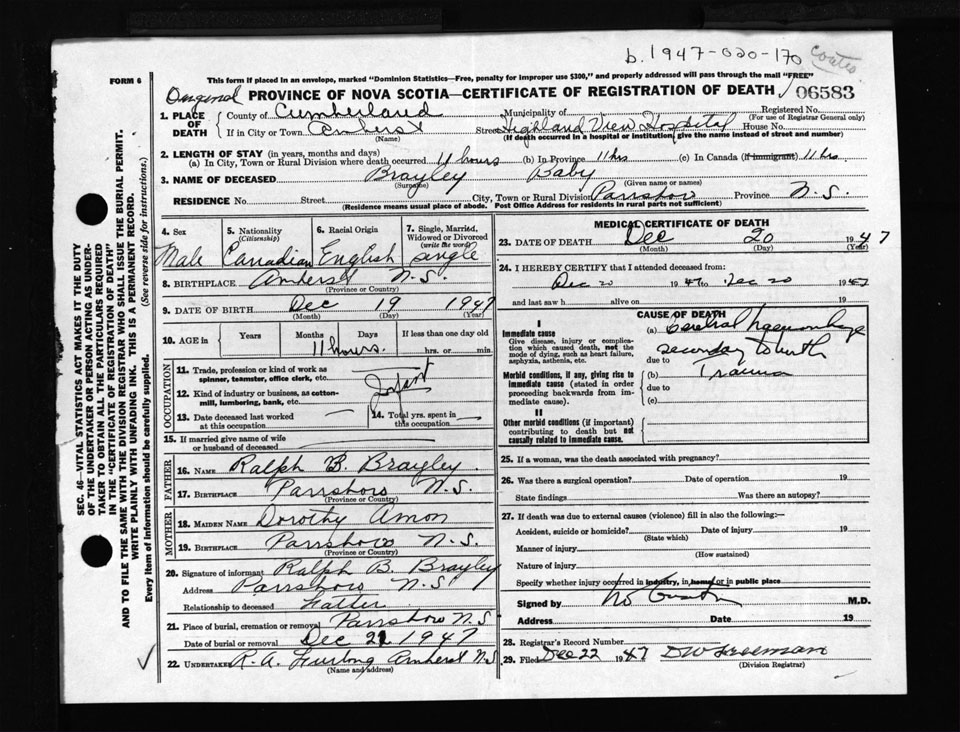 b. 1947-020-170 Coates
FORM 6
This form if placed in an envelope, marked "Dominion Statistics—Free, penalty for improper use $300," and properly addressed will pass through the mail "FREE"
Original PROVINCE OF NOVA SCOTIA—CERTIFICATE OF REGISTRATION OF DEATH 06583
1. PLACE OF DEATH County of Cumberland Municipality of Registered No.
(For use of Registrar General only)
If in City or Town Amherst Street Highland View Hospital House No.
(Name) (If death occurred in a hospital or institution, give the name instead of street and number)
2. LENGTH OF STAY (in years, months and days)
(a) In City, Town or Rural Division where death occurred 11 hours (b) In Province 11 hrs (c) In Canada (if immigrant) 11 hrs.
3. NAME OF DECEASED Brayley Baby
(Surname) (Given name or names)
RESIDENCE No. Street City, Town or Rural Division Parrsboro Province N.S.
(Residence means usual place of abode. Post Office Address for residents in rural parts not sufficient)
4. Sex Male
5. Nationality (Citizenship) Canadian
6. Racial Origin English
7. Single, Married, Widowed or Divorced (write the word) single
8. BIRTHPLACE Amherst N.S.
(Province or Country)
9. DATE OF BIRTH Dec 19 1947
(Month) (Day) (Year)
10. AGE in Years Months Days If less than one day old
11 hours. hrs. or min.
OCCUPATION
11. Trade, profession or kind of work as spinner, teamster, office clerk, etc.
12. Kind of industry or business, as cotton-mill, lumbering, bank, etc. Infant
13. Date deceased last worked at this occupation —
14. Total yrs. spent in this occupation —
15. If married give name of wife or husband of deceased
FATHER
16. NAME Ralph B. Brayley.
17. BIRTHPLACE Parrsboro N.S.
(Province or Country)
MOTHER
18. MAIDEN NAME Dorothy Amon
19. BIRTHPLACE Parrsboro N.S.
(Province or Country)
20. Signature of informant Ralph B. Brayley
Address Parrsboro N.S.
Relationship to deceased Father
21. Place of burial, cremation or removal Parrsboro N.S.
Date of burial or removal Dec 21 1947
22. UNDERTAKER R.A. Furlong Amherst N.S.
(Name and address)
MEDICAL CERTIFICATE OF DEATH
23. DATE OF DEATH Dec 20 1947
(Month) (Day) (Year)
24. I HEREBY CERTIFY that I attended deceased from:
Dec 20 1947 to Dec 20 1947
and last saw h alive on 19
CAUSE OF DEATH
I
Immediate cause
Give disease, injury or complication which caused death, not the mode of dying, such as heart failure, asphyxia, asthenia, etc.
(a) Cerebral haemorrhage
secondary to birth
due to
Morbid conditions, if any, giving rise to immediate cause (stated in order proceeding backwards from immediate cause).
(b) Trauma
due to
(c)
II
Other morbid conditions (if important) contributing to death but not causally related to immediate cause.
25. If a woman, was the death associated with pregnancy?
26. Was there a surgical operation? Date of operation 19
State findings Was there an autopsy?
27. If death was due to external causes (violence) fill in also the following—
Accident, suicide or homicide? Date of injury 19
(State which)
Manner of injury
(How sustained)
Nature of injury
Specify whether injury occurred in industry, in home or in public place
Signed by M.D.
Address Date 19
28. Registrar's Record Number
29. Filed Dec 22 1947 DW Freeman
(Division Registrar)
SEC. 46—VITAL STATISTICS ACT MAKES IT THE DUTY
OF THE UNDERTAKER OR PERSON ACTING AS UNDER-
TAKER TO OBTAIN ALL THE PARTICULARS REQUIRED
IN THE "CERTIFICATE OF REGISTRATION OF DEATH"
AND TO FILE THE SAME WITH THE DIVISION REGISTRAR WHO SHALL ISSUE THE BURIAL PERMIT.
WRITE PLAINLY WITH UNFADING INK. THIS IS A PERMANENT RECORD.
Every item of information should be carefully supplied. (See reverse side for instructions.)